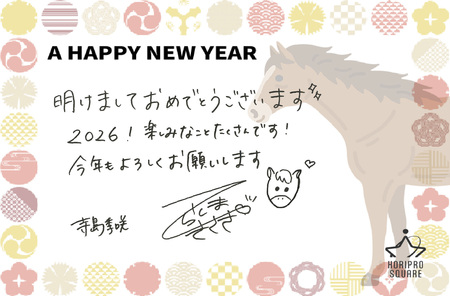 A HAPPY NEW YEAR
明けましておめでとうございます
2026! 楽しみなことたくさんです!
今年もよろしくお願いします
寺島季咲
HORIPRO
SQUARE